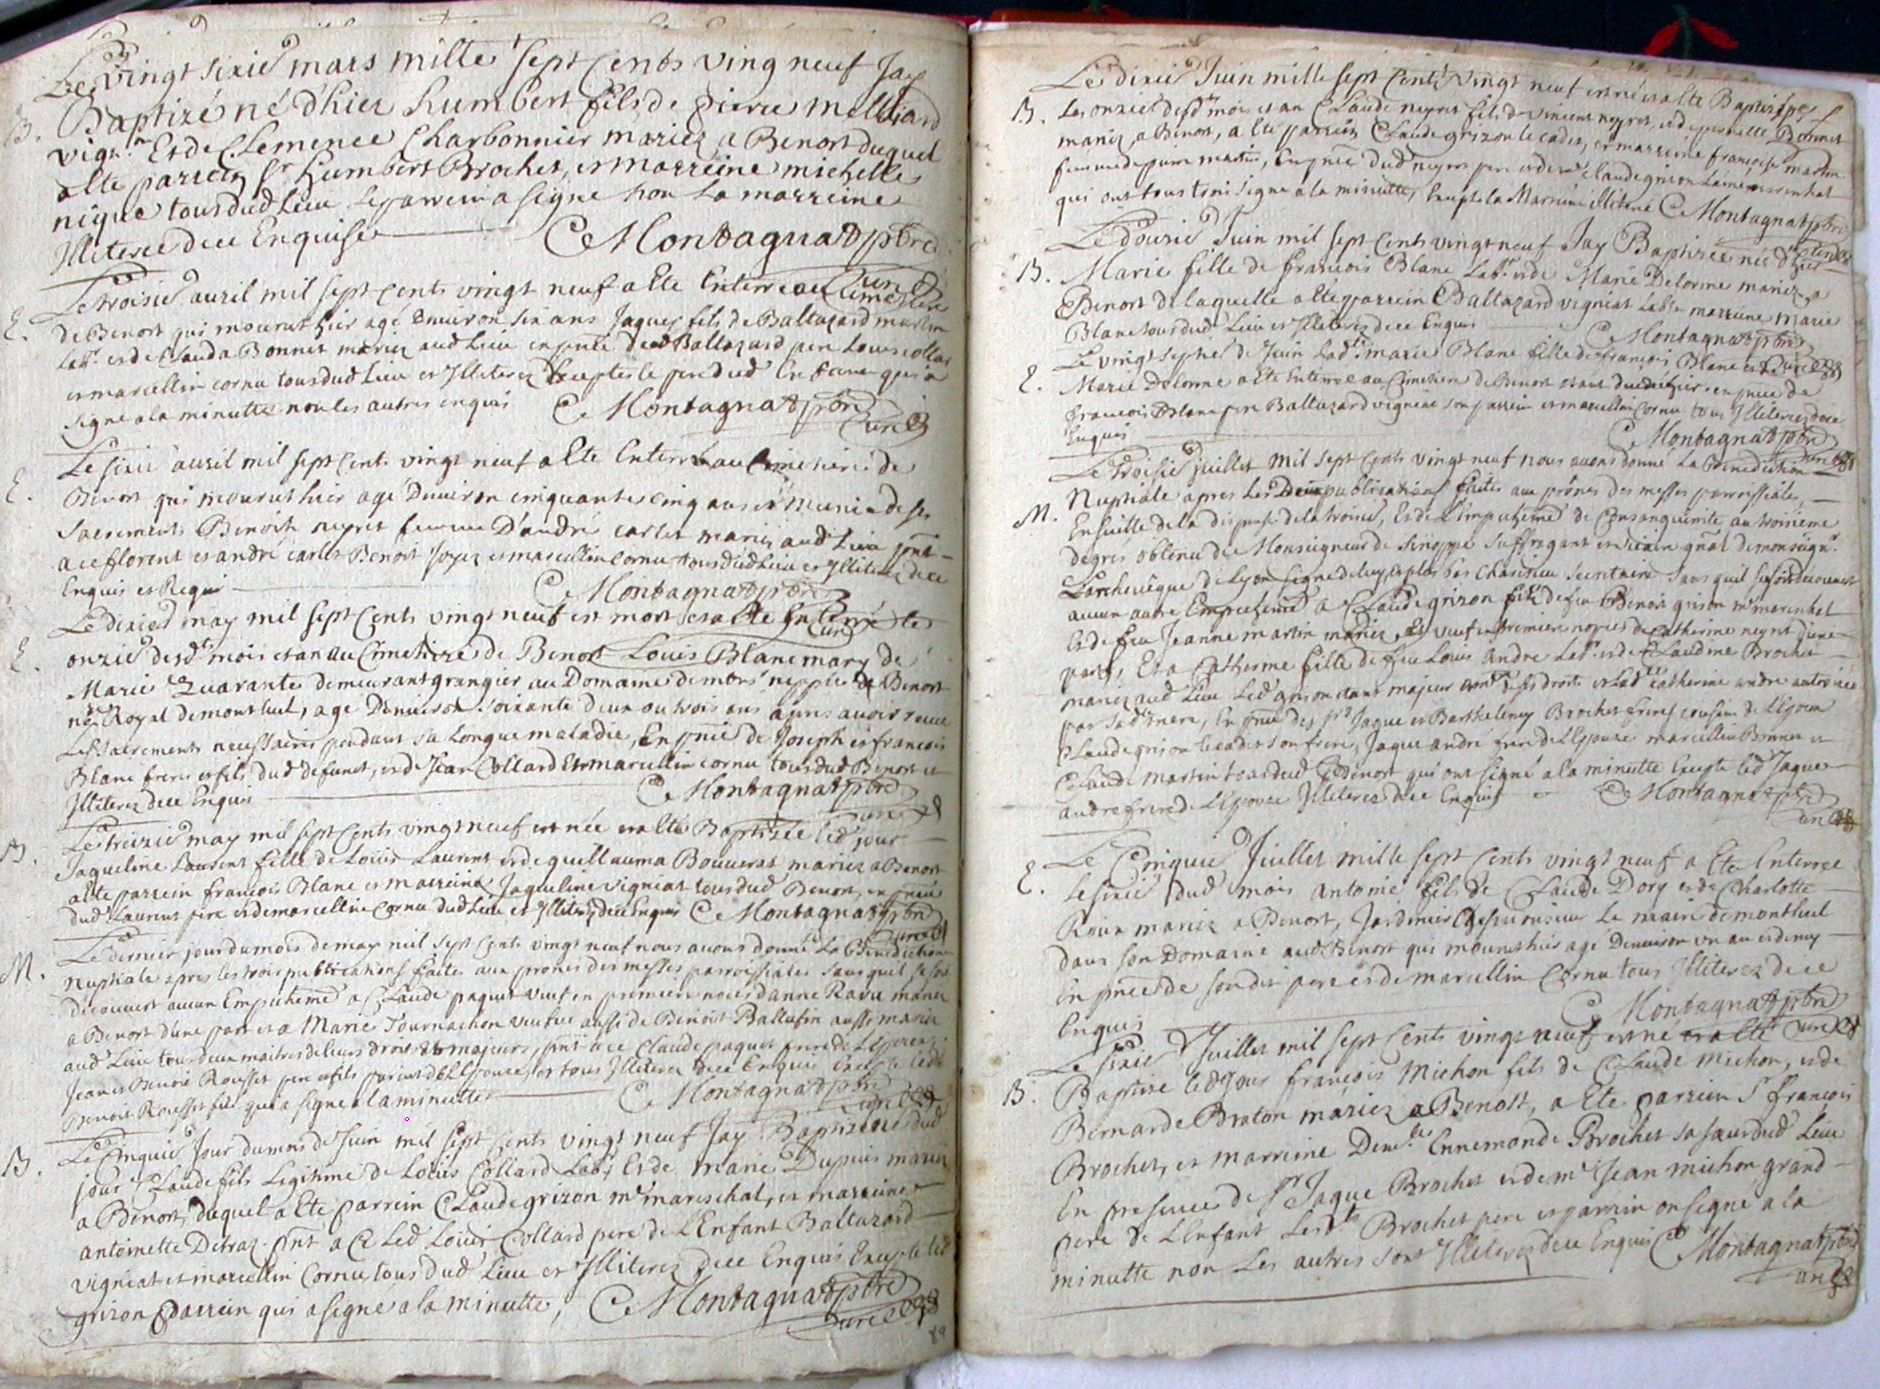 Le vingt sixie mars mille sept Cents ving neuf Jay
B. Baptizé né d'hier humbert fils de pierre Melliard
vign.on Et de Clemence Charbonnier mariez a Benost duquel
a Ete parrein Sr humbert Brochet, et marreine michelle
nique tous dud Lieu Le parrein a signé non La marreine
Illiteree de ce Enquise C Montagnat ptre
curé
Le troisie avril mil sept Cents vingt neuf a Ete Enterré au Cimetiere
E. de Benost qui mourut hier agé Environ six ans Jaques fils de Baltazard martin
Labr. et de Clauda Bonnet mariez aud Lieu en pnce dud Baltazard pere Louis collar
et marcellin cornu tous dud Lieu et Illiterez Excepté le pere dud Enfant qui a
signé a la minutte non les autres enquis C Montagnat ptre
curé
Le sixie avril mil sept Cents vingt neuf a Ete Enterré au Cimetiere de
E. Benost qui mourut hier agé Denviron cinquante cinq ans et munie de ses
Sacrements Benoite neyret femme D'andré carlet mariez aud Lieu pnt
a ce florent et andré carlet Benoit Joyez et marcellin Cornu tous dud Lieu et Illiterez de ce
Enquis et Requis C Montagnat ptre
curé
Le dixie may mil sept Cents vingt neuf est mort et a Ete Enterré le
E. onzie desd. mois et an au Cimetiere de Benost Louis Blanc mary de
Marie Quarante demeurant grangier au Domaine de monsr neppie de Benost
nre Royal de montluel, agé Denviron soixante deux ou trois ans apres avoir receu
Les Sacrements necessaires pendant sa Longue maladie, En pnce de Joseph et francois
Blanc freres et fils dud defunct, et de Jean Collard Et marcellin cornu tous dud Benost et
Illiterez de ce Enquis C Montagnat ptre
curé
Le treizie may mil sept Cents vingt neuf est née et a Ete Baptizée led jour
B. Jaqueline Laurent fille de Louis Laurent et de guillauma Bouverat mariez a Benost
a Ete parrein francois Blanc et marreine Jaqueline vigniat tous dud Benost, en pnce
dud Laurent pere et de marcellin Cornu dud Lieu et Illiterez de ce Enquis C Montagnat ptre
curé
Le dernier jour du mois de may mil sept Cents vingt neuf nous avons donné La Benediction
M. Nuptiale apres les trois publications faites aux prones des messes parroissiales sans quil se soit
decouvert aucun Empechemt a Claude paquet veuf en premiere noces d'anne Ravu mariez
a Benost d'une part et a Marie Tournachon veufve aussi de Benoit Ballufin aussi mariez
aud Lieu tous deux maitres de leurs droits et majeurs, pnt a ce Claude paquet frere de L'Epoux
Jean et Benoit Rousset pere et fils parents de L'Epouse, et tous Illiterez de ce Enquis Excepté led
Benoit Rousset fils qui a signé a la minutte C Montagnat ptre
curé
Le Cinquie Jour du mois de Juin mil sept Cents vingt neuf Jay Baptizé né dud
B. jour Claude fils Legitime de Louis Collard Labr. Et de Marie Dupuis mariez
a Benost, duquel a Ete parrein Claude grizon me mareschal, et marreine
antoinette Detraz. pnt a Ce Led Louis Collard pere de L'Enfant Baltazard
vigniat et marcellin Cornu tous dud Lieu et Illiterez de ce Enquis Excepté led
grizon parrein qui a signé a la minutte, C Montagnat ptre
curé
89
Le dixie Juin mille sept Cents vingt neuf est né et a Ete Baptizé
B. Les onzie desd. mois et an Claude neyret fils de vincent neyret, et de pernette Bonnet
mariez a Benost, a Ete parrein Claude grizon le cadet, et marreine francoise martin
femme de pierre martin, En pnce dud neyret pere et de me Claude grizon L'ainé mareschal
qui ont tous trois signé a la minutte, Excepté la Marreine illiterée C Montagnat ptre
curé
Le Douzie Juin mil sept Cents vingt neuf Jay Baptizée née d'hier
B. Marie fille de francois Blanc Labr. et de Marie Delorme mariez a
Benost de laquelle a Eté parrein Baltazard vigniat Labr. marreine Marie
Blanc tous dud. Lieu et Illiterez de ce Enquis C Montagnat ptre
curé
Le vingt septie de Juin Lad. marie Blanc fille de francois Blanc et de
E. Marie Delorme a Ete Enterrée au Cimetiere de Benost etant decedée hier en pnce de
francois Blanc pere Baltazard vigniat son parrein et marcellin Cornu tous Illiterez de ce
Enquis C Montagnat ptre
curé
Le Troisie juillet mil sept Cents vingt neuf nous avons donné La Benediction
M. Nuptiale apres Les Deux publications faites aux prônes des messes parroissiales,
Ensuitte de la dispense de la troisie, Et de L'Empechemt de Consanguinité au troisieme
degres obtenu de Monseigneur de Sinoppe suffragant et vicaire gnal de monseignr
L'archevêque de Lyon signé de luy et plus bas Charcieu secretaire sans quil se soit decouvert
aucun autre Empechemt a Claude grizon fils de feu Benoit grizon me mareschal
Et de feu Jeanne martin mariez, Et veuf en premiere nopces de Catherine neyret d'une
part, Et a Catherine fille de feu Louis andré Labr. et de Claudine Brochet
mariez aud Lieu Led grizon etant majeur de ses droits et Lad Catherine andré autorisée
par Sad. mere, En pnce des srs Jaque et Barthelemy Brochet freres cousins de L'Epoux
Claude grizon le cadet son frere, Jaque andré frere de L'Epouse marcellin Bonnet et
Claude Martin tous dud Benost qui ont signé a la minutte Excepté led Jaque
andré frere de L'Epouse Illiterez de ce Enquis C Montagnat ptre
curé
Le Cinquie Juillet mille sept Cents vingt neuf a Ete Enterré
E. Le sixie dud mois antoine fils de Claude Dory et de Charlotte
Roux mariez a Benost, Jardinier Chez monsieur Le maire de montluel
dans son Domaine aud Benost qui mourut hier agé Denviron un an et demy
En pnce de son dit pere et de marcellin Cornu tous Illiterez de ce
Enquis C Montagnat ptre
curé
Le sixie Juillet mil sept Cents vingt neuf est né et a Ete
B. Baptizé led jour francois Michon fils de Claude michon, et de
Bernarde Braton mariez a Benost, a Ete parrein Sr francois
Brochet, et marreine Demlle Ennemonde Brochet sa sœur dud Lieu
En presence de Sr Jaque Brochet et de me Jean michon grand
pere de L'Enfant Lesdts Brochet pere et parrein on signé a la
minutte non Les autres sont Illiterez de ce Enquis C Montagnat ptre
curé